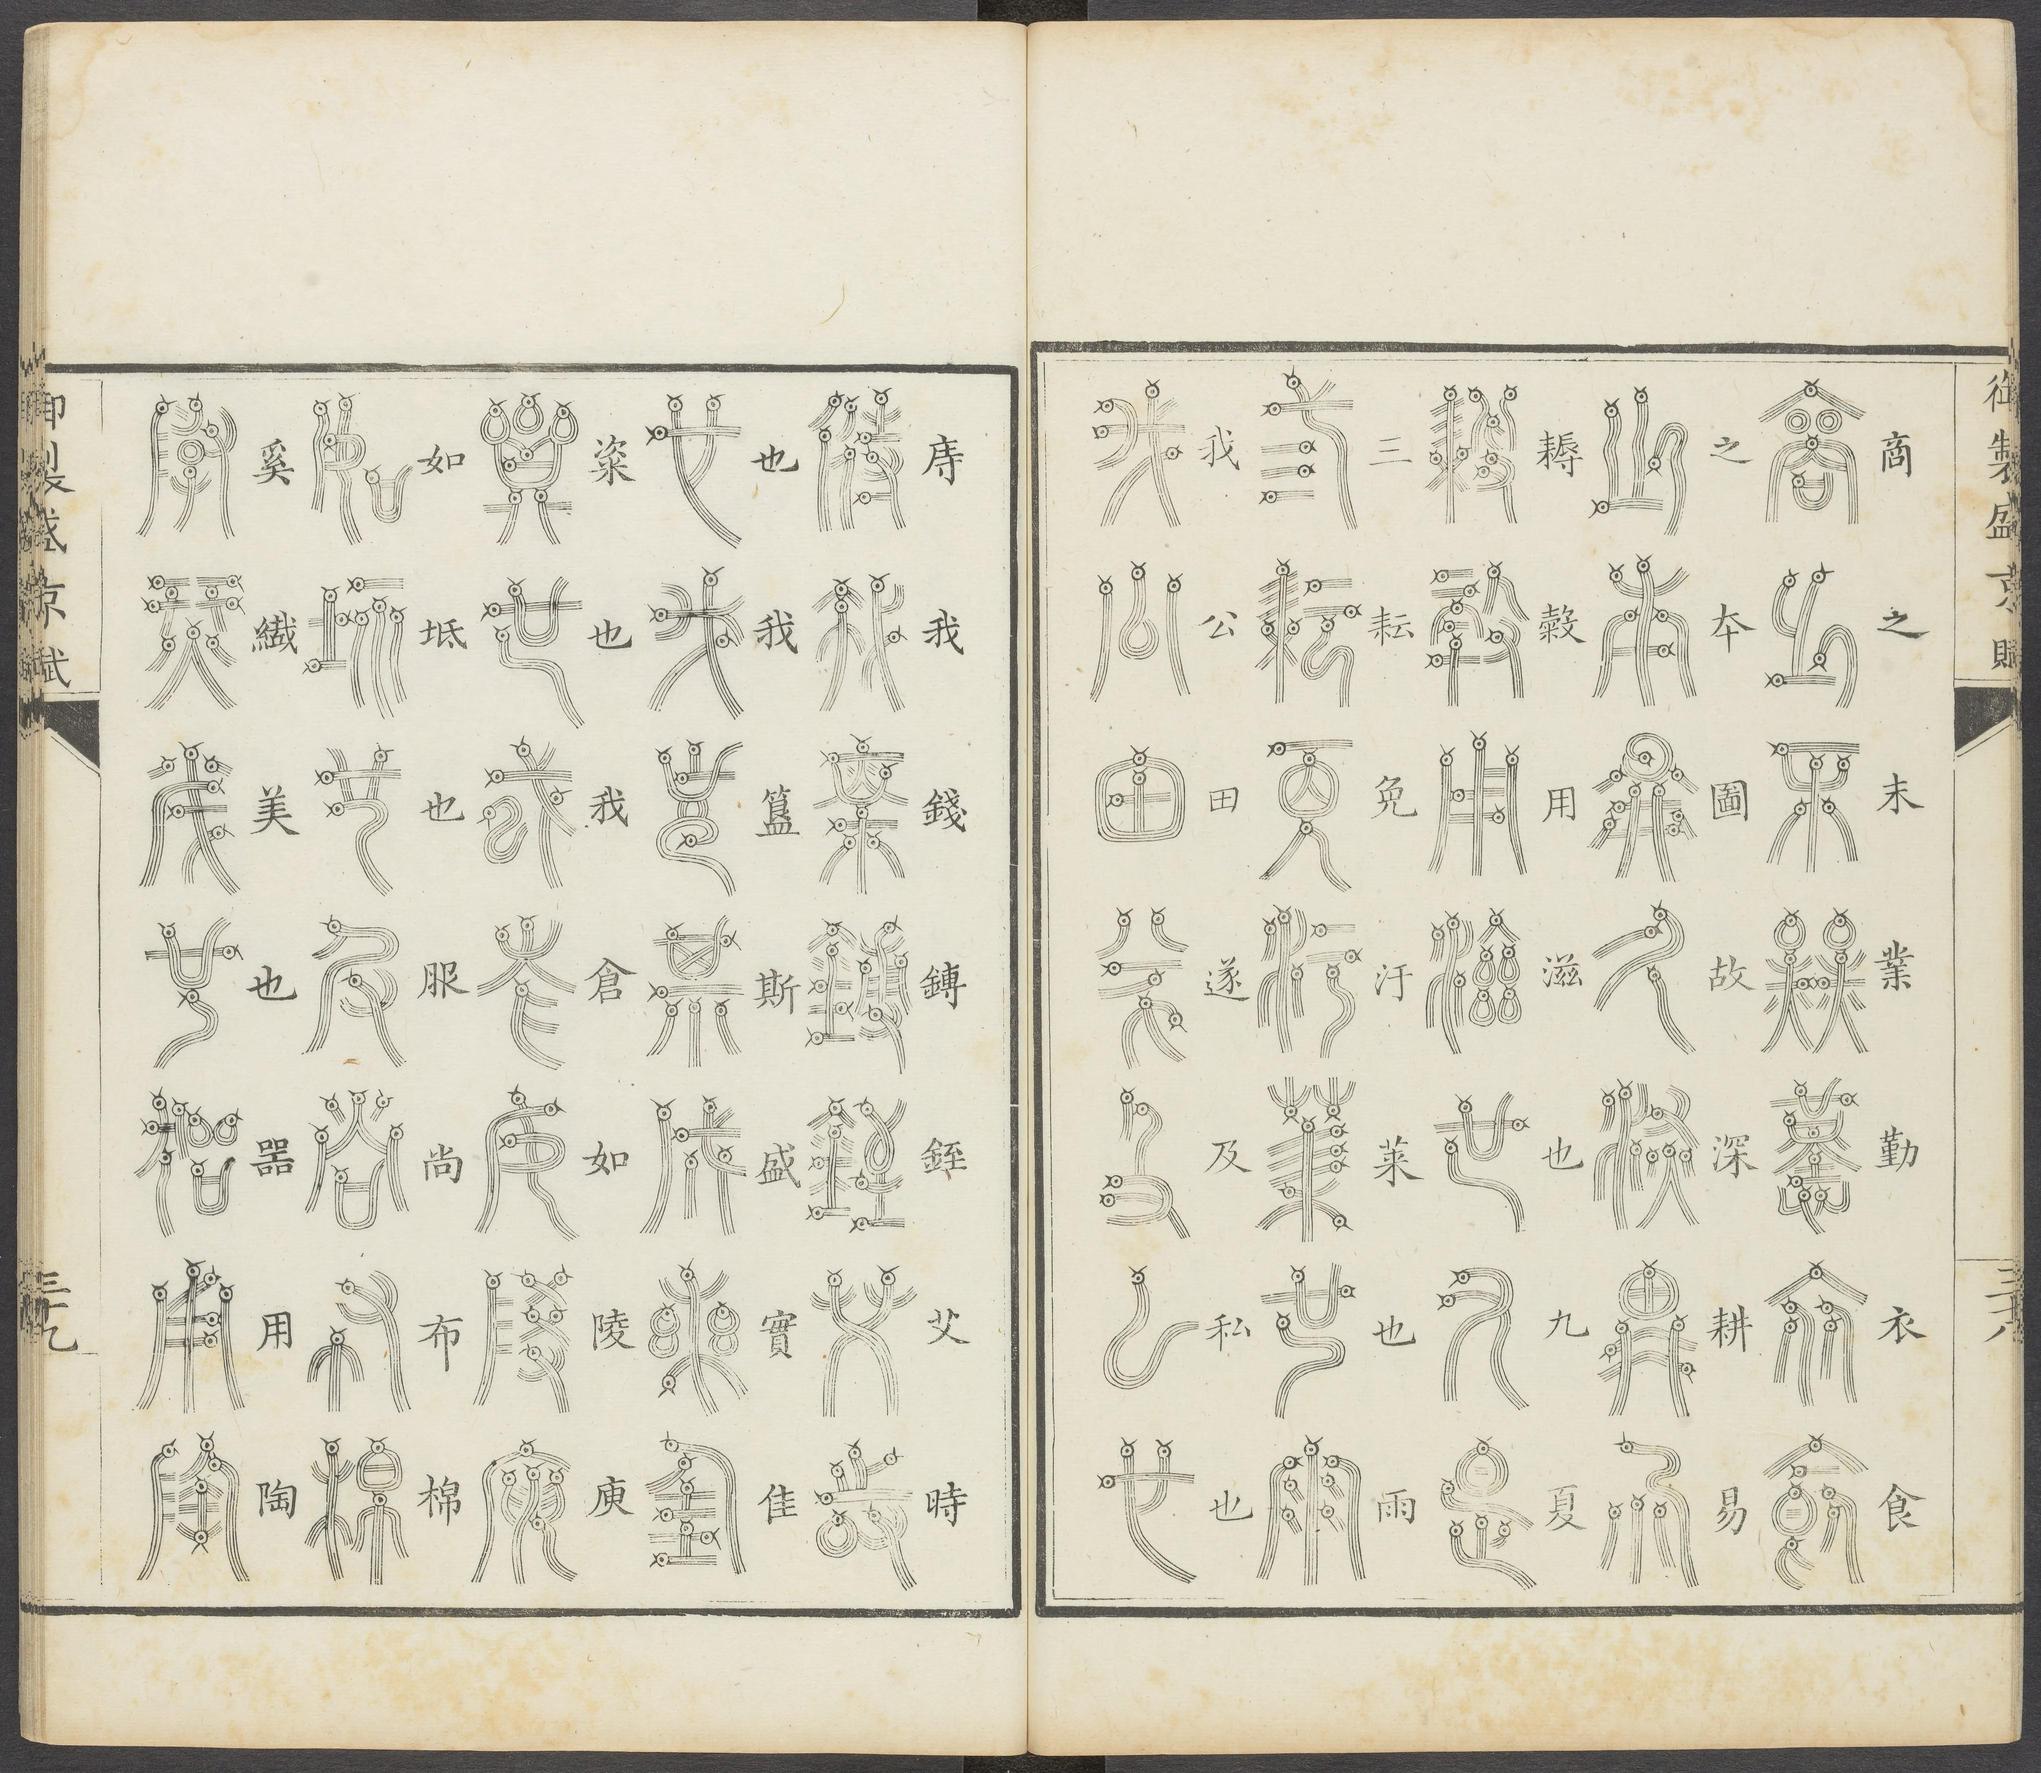 御製盛京賦
三十八
商之末業勤衣食
之本圖故深耕易
耨穀用滋也九夏
三耘免汙萊也雨
我公田遂及私也
庤我錢鎛銍艾時
也我簋斯盛實佳
粢也我倉如陵庾
如坻也服尚布棉
奚纖美也器用陶
御製盛京賦
三十九